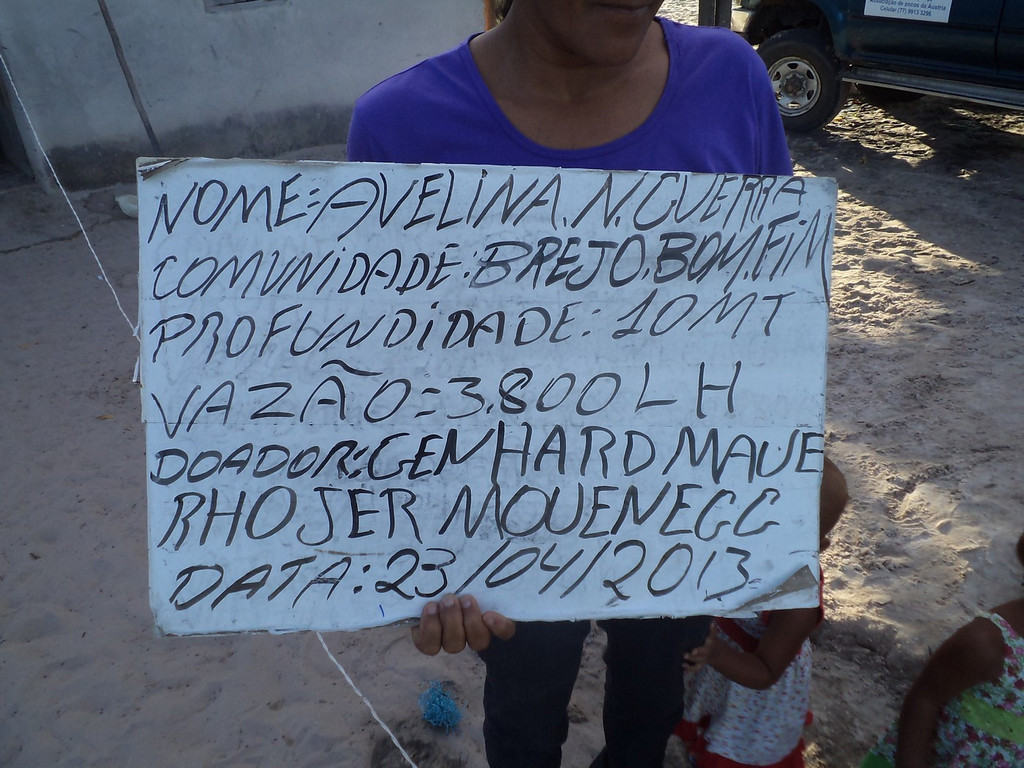 Associação de poços da Áustria
Celular (77) 9913 3296
NOME: AVELINA. N. GUERRA
COMUNIDADE: BREJO. BOM. FiM
PROFUNDiDADE: 10 MT
VAZÃO = 3.800 L H
DOADOR: GENHARD MAUE
RHOJER MOUENEGG
DATA: 23/04/2013